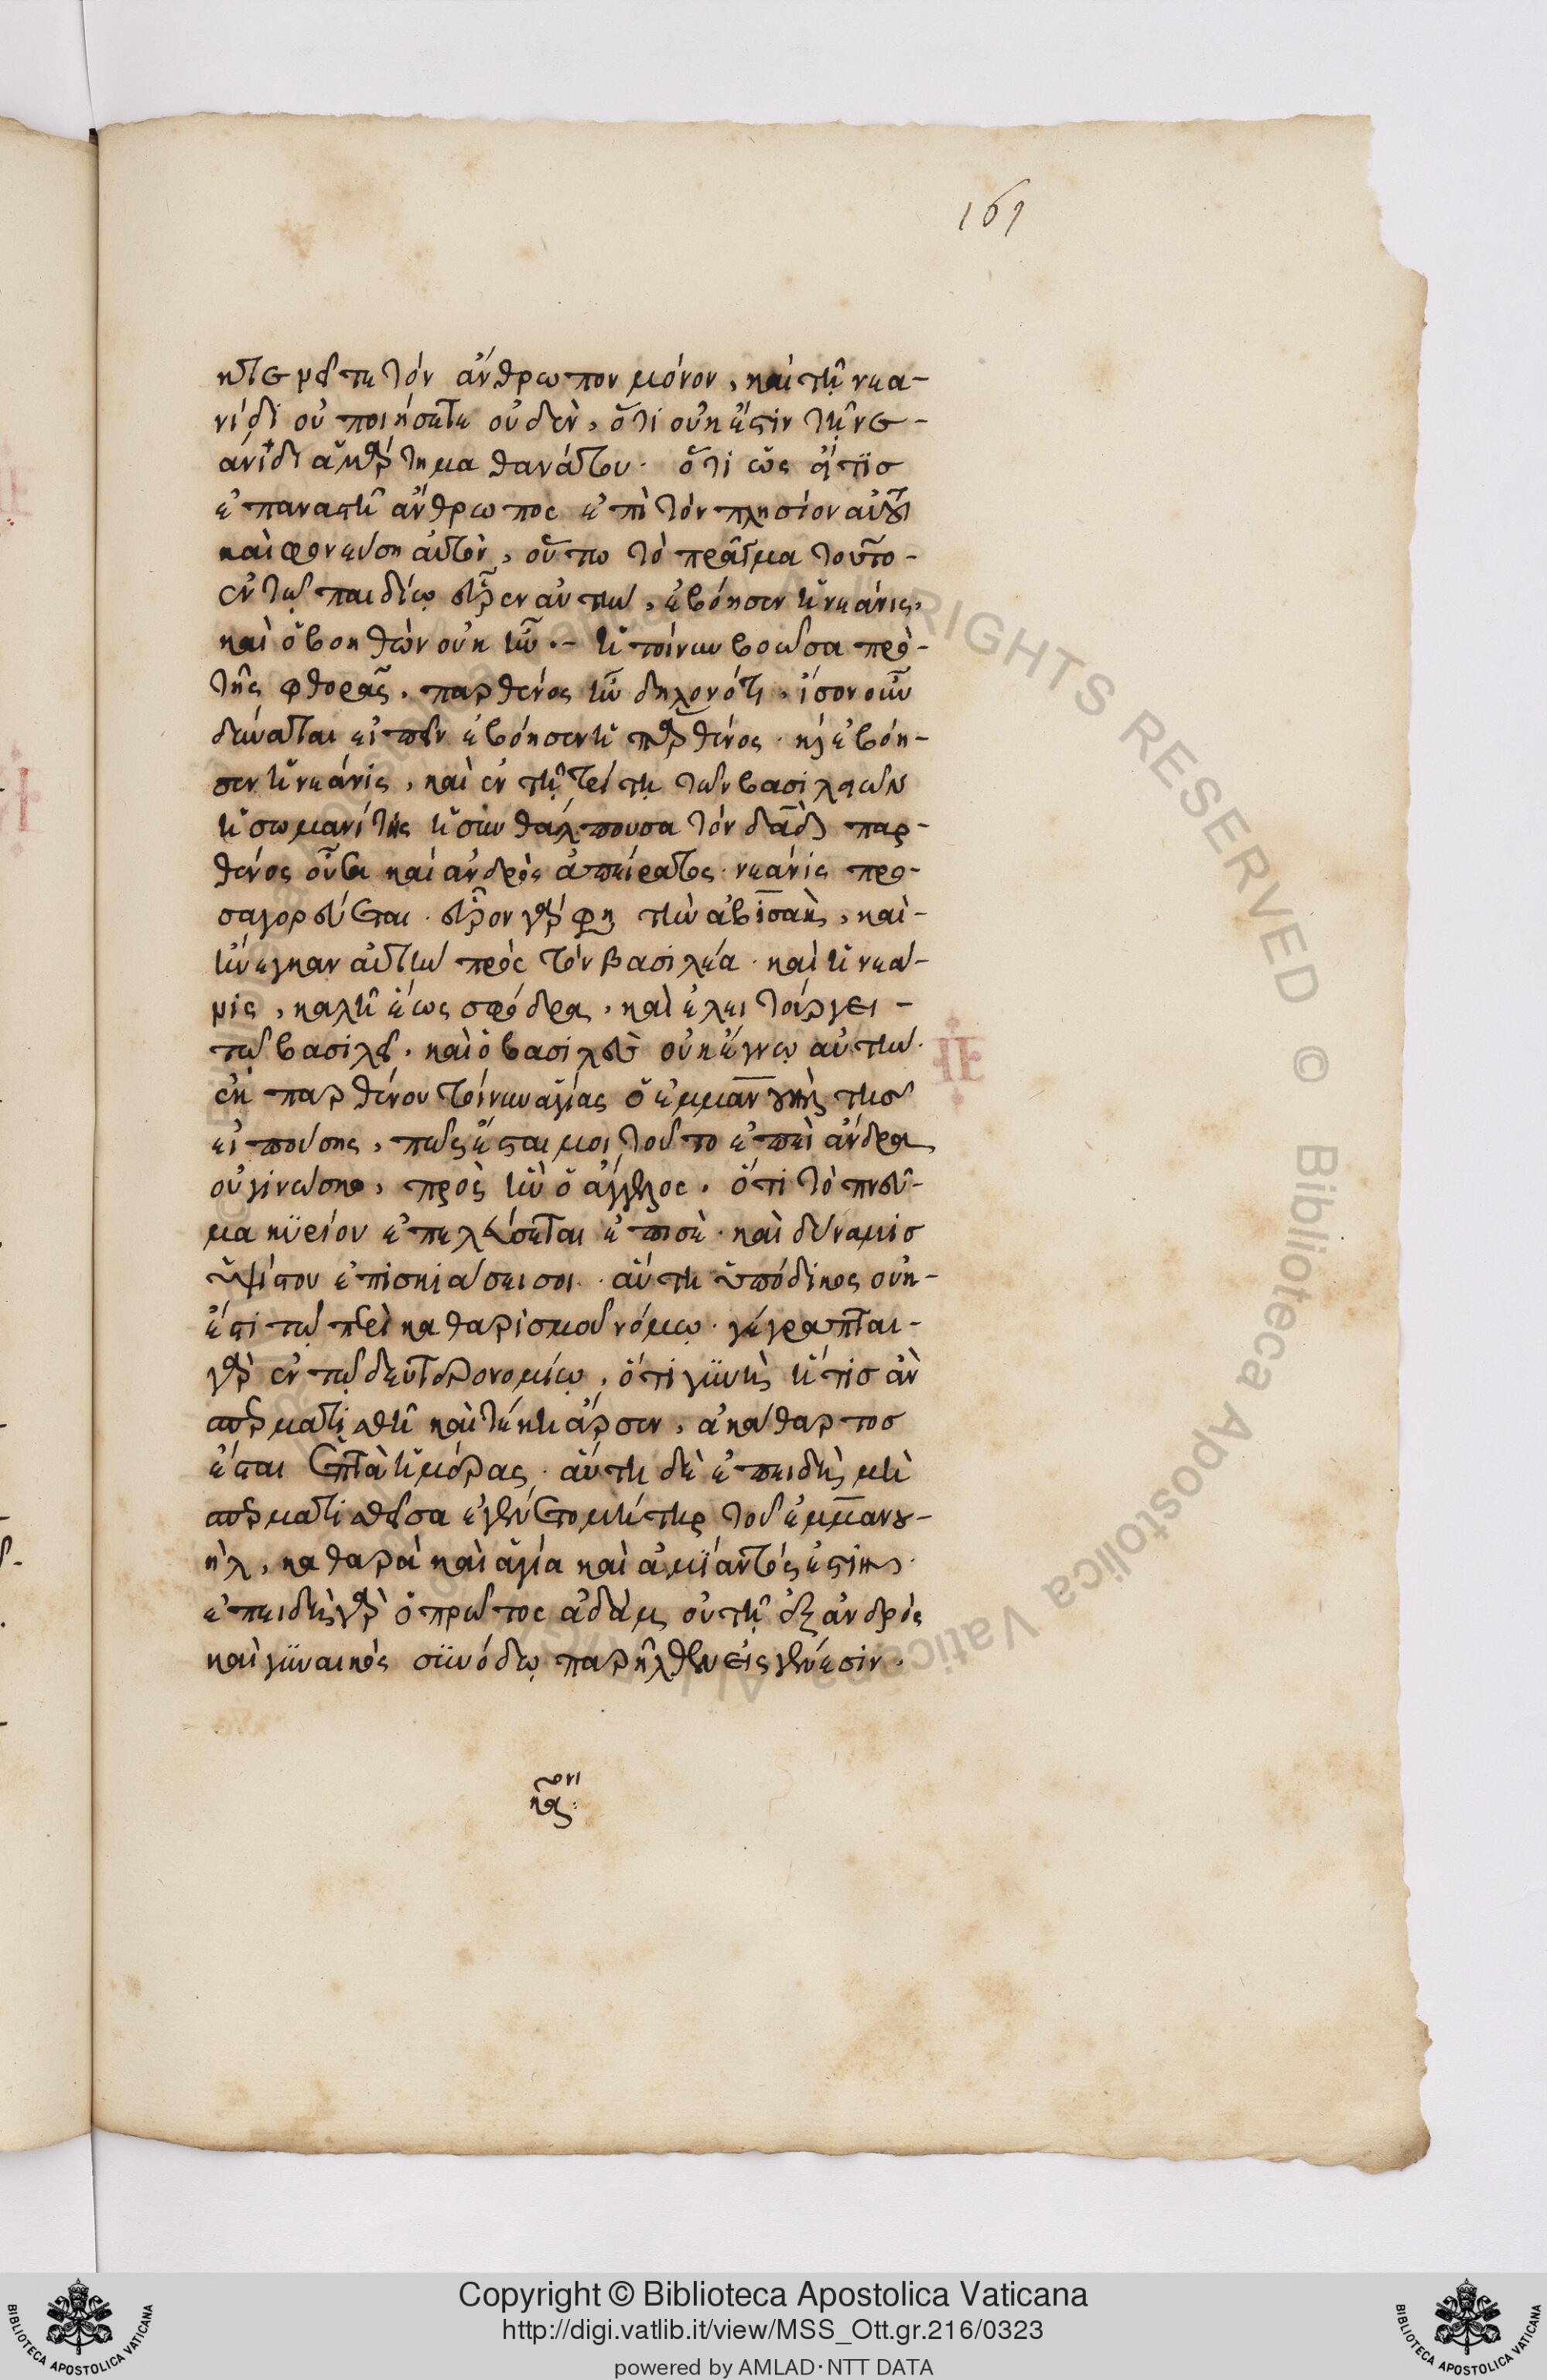 161
κτενεῖτε τὸν ἄνθρωπον μόνον, καὶ τῆ νεα-
νίδι οὐ ποιήσετε οὐδὲν, ὅτι οὐκ ἔστιν τῆ νε-
άνιδι ἁμάρτημα θανάτου. ὅτι ὡς εἴ τισ
ἐπαναστῆ ἄνθρωπος ἐπὶ τὸν πλησίον αὐτοῦ
καὶ φονεύση αὐτὸν, οὕτω τὸ πρᾶγμα τοῦτο-
ἐν τῶ παιδίω εὗρεν αὐτὴν, ἐβόησεν ἡ νεάνις,
καὶ ὁ βοηθῶν οὐκ ἦν. - ἡ τοίνυν βοῶσα πρὸ-
τῆς φθορᾶς, παρθένος ἦν δηλονότι, ἴσον οὖν
δύναται εἰπεῖν ἐβόησεν ἡ παρθένος. καὶ ἐβόη-
σεν ἡ νεάνις, καὶ ἐν τῆ τρίτη τῶν βασιλειῶν
ἡ σωμανίτης ἡ συνθάλπουσα τὸν δᾱδ παρ-
θένος οὖσα καὶ ἀνδρὸς ἀπείρατος. νεάνις προ-
σαγορεύεται. εὗρον γάρ φη τὴν ἀβισὰκ, καὶ-
ἤνεγκαν αὐτὴν πρὸς τὸν βασιλέα. καὶ ἡ νεᾶ-
νις, καλὴ ἕως σφόδρα, καὶ ἐλειτούργει-
τῶ βασιλεῖ, καὶ ὁ βασιλεὺς οὐκ ἔγνω αὐτήν.
ἐκ παρθένου τοίνυν ἁγίας ὁ ἐμμανουὴλ τῆσ
εἰπούσης, πῶς ἔσται μοι τοῦτο ἐπεὶ ἄνδρα
οὐ γινώσκω, πρὸς ἣν ὁ ἄγγελος. ὅτι τὸ πνεῦ-
μα κϋρίου ἐπελεύσεται ἐπισὲ. καὶ δύναμισ
ὑψίστου ἐπισκιάσει σοι. αὕτη ὑπόδικος οὐκ-
ἔστι τῶ περὶ καθαρισμοῦ νόμω. γέγραπται-
γὰρ ἐν τῶ δευτερονομίω, ὅτι γϋνὴ ἥτισ ἂν
σπερματισθῆ καὶ τέκη ἄρσεν, ἀκάθαρτοσ
ἔσται ἑπτὰ ἡμέρας. αὕτη δὲ ἐπειδὴ μὴ
σπερματισθεῖσα ἐγένετο μήτηρ τοῦ ἐμμανου-
ήλ, καθαρὰ καὶ ἁγία καὶ ἀμίαντός ἐστιν.
ἐπειδὴ γὰρ ὁ πρῶτος ἀδὰμ οὐ τῆ ἐξ ἀνδρὸς
καὶ γϋναικὸς σϋνόδω παρῆλθεν εἰς γένεσιν.
Copyright © Biblioteca Apostolica Vaticana
http://digi.vatlib.it/view/MSS_Ott.gr.216/0323
powered by AMLAD·NTT DATA